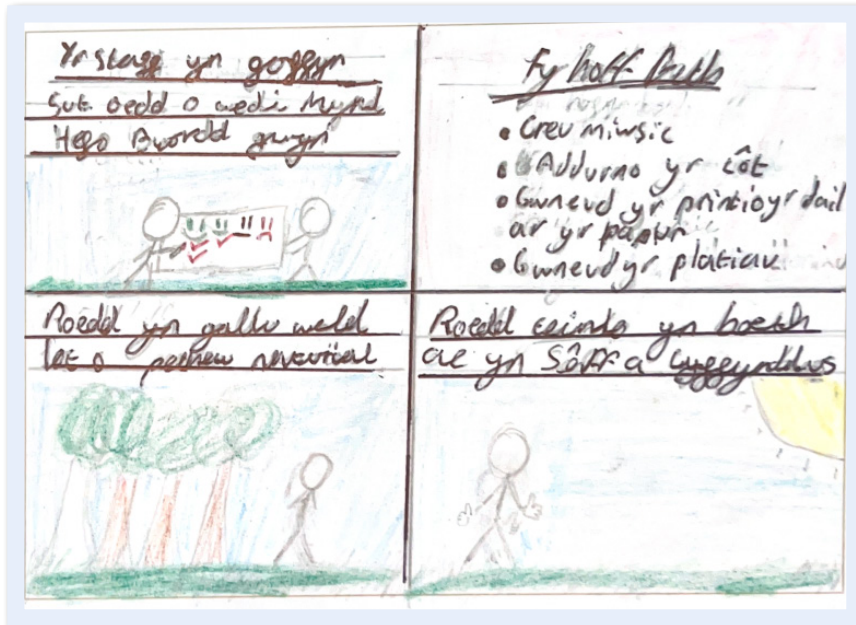 Yr staff yn gofyn
Sut oedd o wedi mynd
Hefo Bwordd gwyn
Fy hoff Peth
• Creu miwsic
• Addurno yr côt
• Gwneud yr printio yr dail
ar yr papur
• Gwneud yr platiau
Roedd yn gallu weld
lot o pethau naturiol
Roedd teimlo yn boeth
ac yn Sâff a Cyfforddus